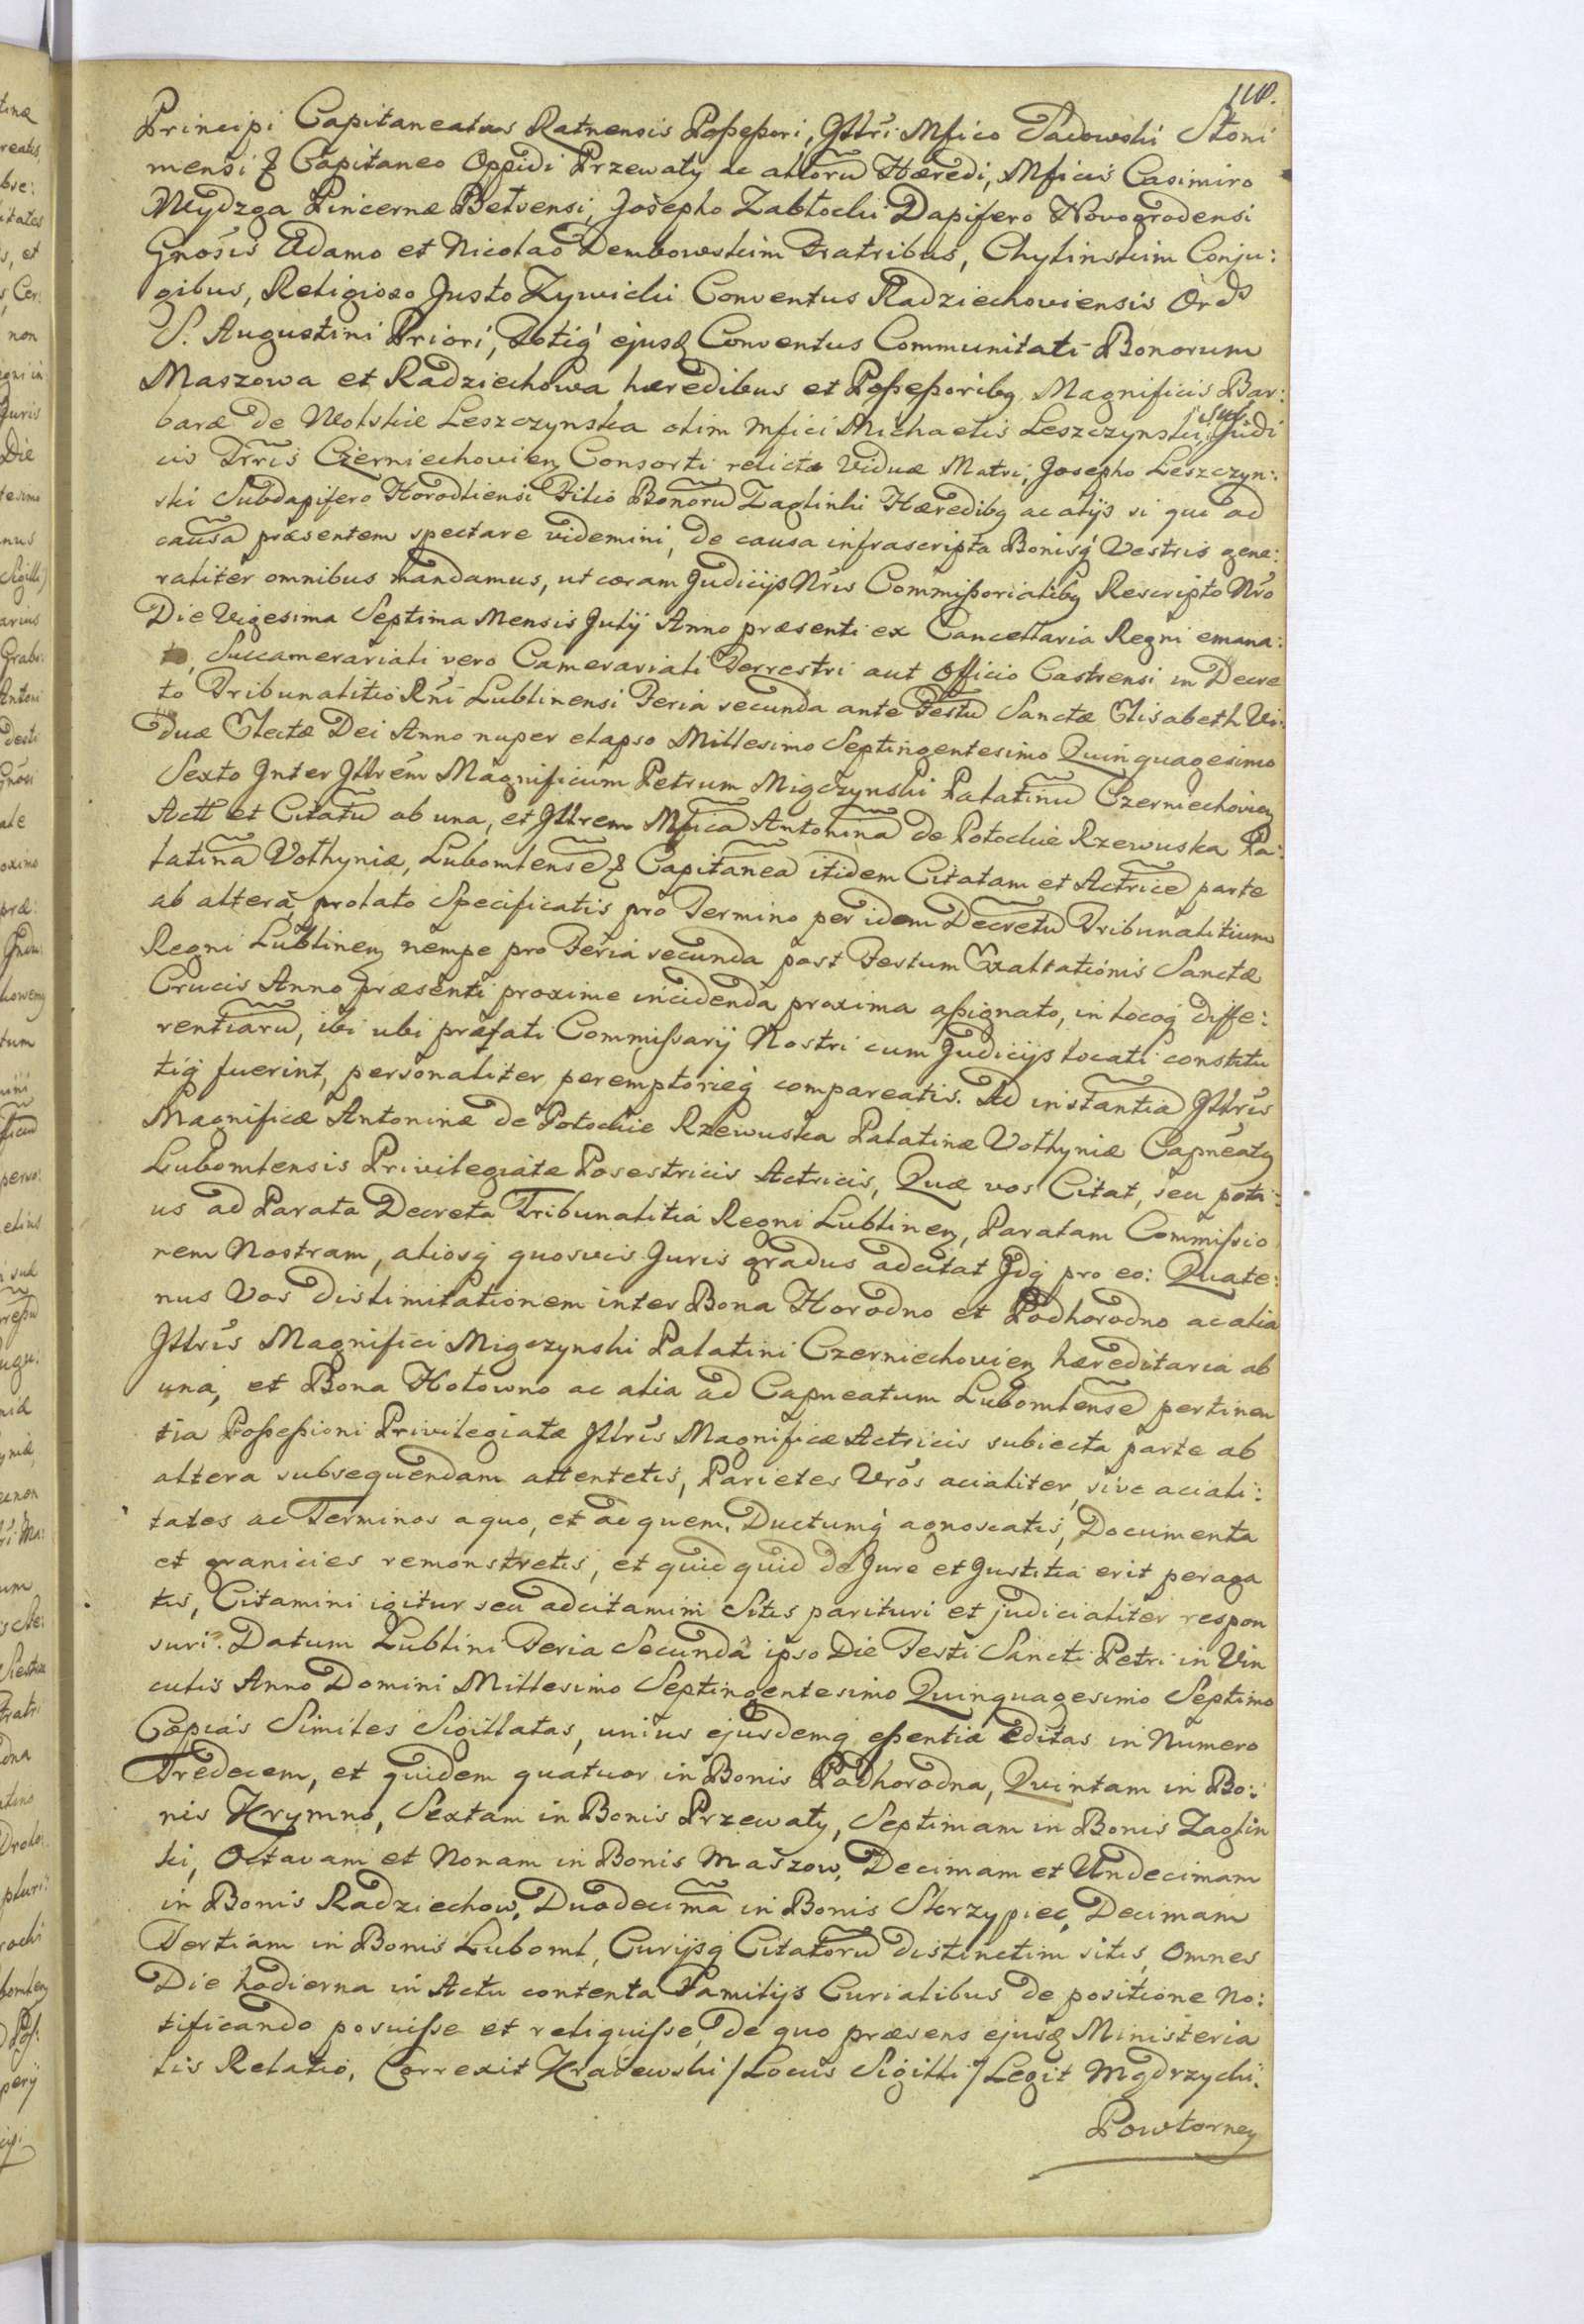 118.
Principi Capitaneatus Ratnensis Poßeßori, Jllri Mfico Sadowski Słoni
mensi & Capitaneo Oppidi Przewały ac alioru Hæredi, Mficis Casimiro
Wydzga Pincernæ Bełzensi, Josepho Zabłocki Dapifero Novogrodensi
Gnosis Adamo et Nicolao Dembowskim Fratribus, Chylinskim Conju:
gibus, Religioso Justo Zywicki Conventus Radziechoviensis Ord
S. Augustini Priori, Totiq ejusq Conventus Communitati Bonorum
Maszowa et Radziechowa hæredibus et Poßeßoribg Magnificis Bar:
baræ de Wolskie Leszczynska olim Mfici Michaelis Leszczynski, Sub Judi
cis Trris Czerniechovien Consorti relictæ Viduæ Matri, Josepho Leszczyn:
ski Subdapifero Horodliensi Filio Bonoru Zaglinki Hæredibg ac alijs si qui ad
causa præsentem spectare videmini, de causa infrascripta Bonisq Vestris gene:
raliter omnibus mandamus, ut coram Judicijs Nris Commißorialibg Rescripto Nro
Die Vigesima Septima Mensis Julij Anno præsenti ex Cancellaria Regni emana:
to, Succamerariali vero Camerariali Terrestri aut Officio Castrensi in Decre
to Tribunalitio Rni Lublinensi Feria secunda ante Festu Sanctæ Elisabeth Vi:
duæ Electæ Dei Anno nuper elapso Millesimo Septingentesimo Quinquagesimo
Sexto Jnter Jllrem Magnificum Petrum Miączynski Palatinu Czerniechovien
Actt et Citatu ab una, et Jllrem Mfica Antonina de Potockie Rzewuska Pa:
latina Volhyniæ, Lubomlense & Capitanea itidem Citatam et Actrice parte
ab altera, prolato Specificatis pro Termino per idem Decretu Tribunalitium
Regni Lublinen nempe pro Feria secunda post Festum Exaltationis Sanctæ
Crucis Anno præsenti proxime incidenda proxima aßignato, in locoq diffe:
rentiaru, ibi ubi præfati Commißarij Nostri cum Judicijs locati constitu
tiq fuerint, personaliter peremptorieq compareatis. Ad instantia Jllris
Magnificæ Antoninæ de Potockie Rzewuska Palatinæ Volhyniæ Capneatg
Lubomlensis Privilegiatæ Posestricis Actricis, Quæ vos Citat, seu poti:
us ad Parata Decreta Tribunalitia Regni Lublinen, Paratam Commißio
nem Nostram, aliosq quosvis Juris gradus adcitat Jdq pro eo: Quate:
nus Vos dislimitationem inter Bona Horodno et Podhorodno ac alia
Jllris Magnifici Miączynski Palatini Czerniechovien hæreditaria ab
una, et Bona Hołowno ac alia ad Capneatum Lubomlense pertinen
tia Poßeßioni Privilegiatæ Jllris Magnificæ Actricis subiecta parte ab
altera subsequendam attentetis, Parietes Vros acialiter, sive aciali:
tates ac Terminos a quo, et ad quem, Ductumq agnoscatis, Documenta
et granicies remonstretis, et quid quid de Jure et Justitia erit peraga
tis, Citamini igitur seu adcitamini Sitis parituri et judicialiter respon
suri. Datum Lublini Feria Secunda ipso Die Festi Sancti Petri in Vin
culis Anno Domini Millesimo Septingentesimo Quinquagesimo Septimo
Copias Similes Sigillatas, unius ejusdemq eßentiæ editas in Numero
Tredecem, et quidem quatuor in Bonis Podhorodna, Quintam in Bo:
nis Krymno, Sextam in Bonis Przewały, Septimam in Bonis Zaglin
ki, Octavam et Nonam in Bonis Maszow, Decimam et Undecimam
in Bonis Radziechow, Duodecima in Bonis Skrzypiec, Decimam
Tertiam in Bonis Luboml, Curijsq Citatoru distinctim sitis, omnes
Die hodierna in Actu contenta Familijs Curialibus de positione no:
tificando posuiße et reliquiße, de quo præsens ejusq Ministeria
lis Relatio, Correxit Kraiewski / Locus Sigilli / Legit Mądrzycki.
Powtorney